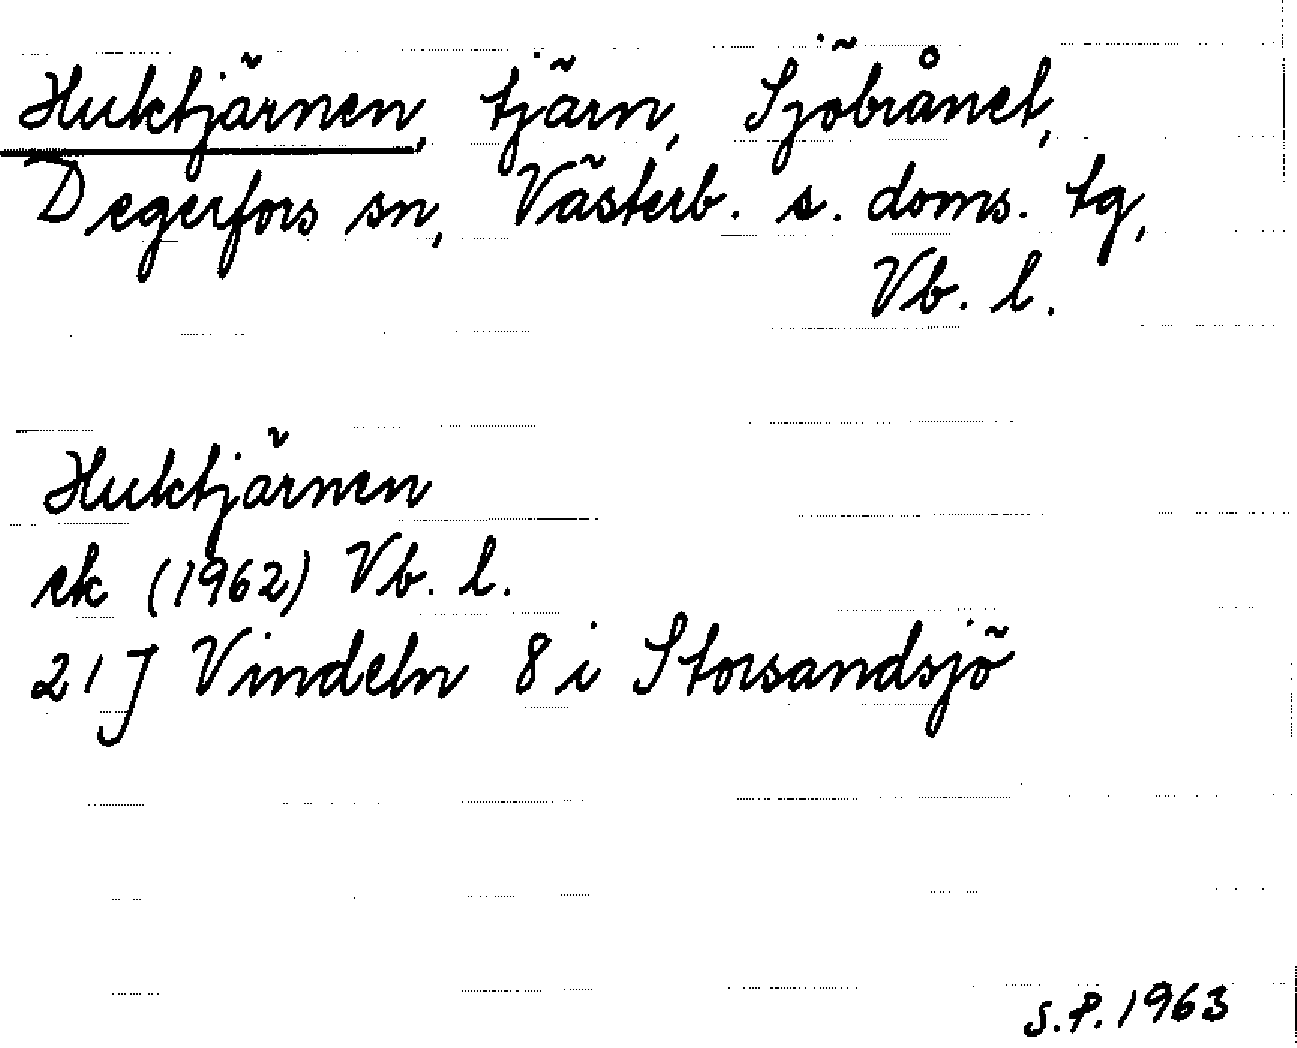 Huktjärnen, tjärn, Sjöbrånet,
Degerfors sn, Västerb. s. doms. tg,
Vb. l.
Huktjärnen
ek (1962) Vb. l.
21J Vindeln 8 i Storsandsjö
S.P. 1963